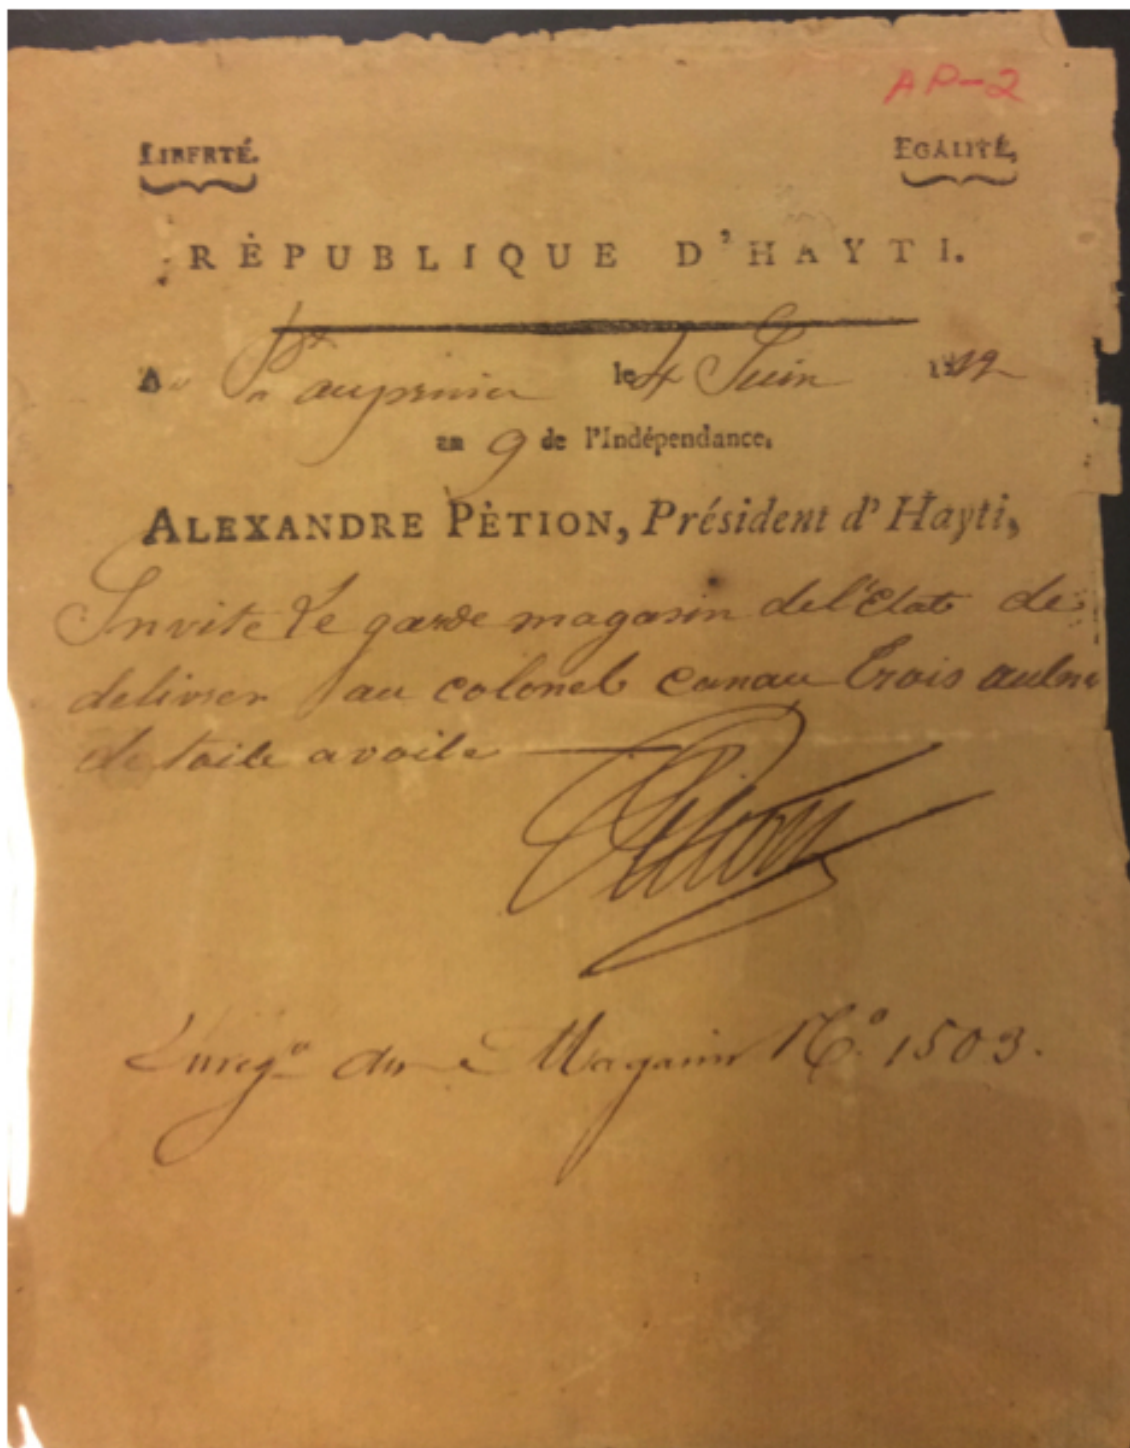 AP-2
LIBERTÉ. EGALITÉ,
RÉPUBLIQUE D'HAYTI.
Au Port au prince le 4 Juin 1812
an 9 de l'Indépendance.
ALEXANDRE PÈTION, Président d'Hayti,
Invite Le garde magasin de l'Etat de
delivrer au colonel canau trois aulne
de toile a voile
Pétion
Enreg. du Magasin No. 1503.